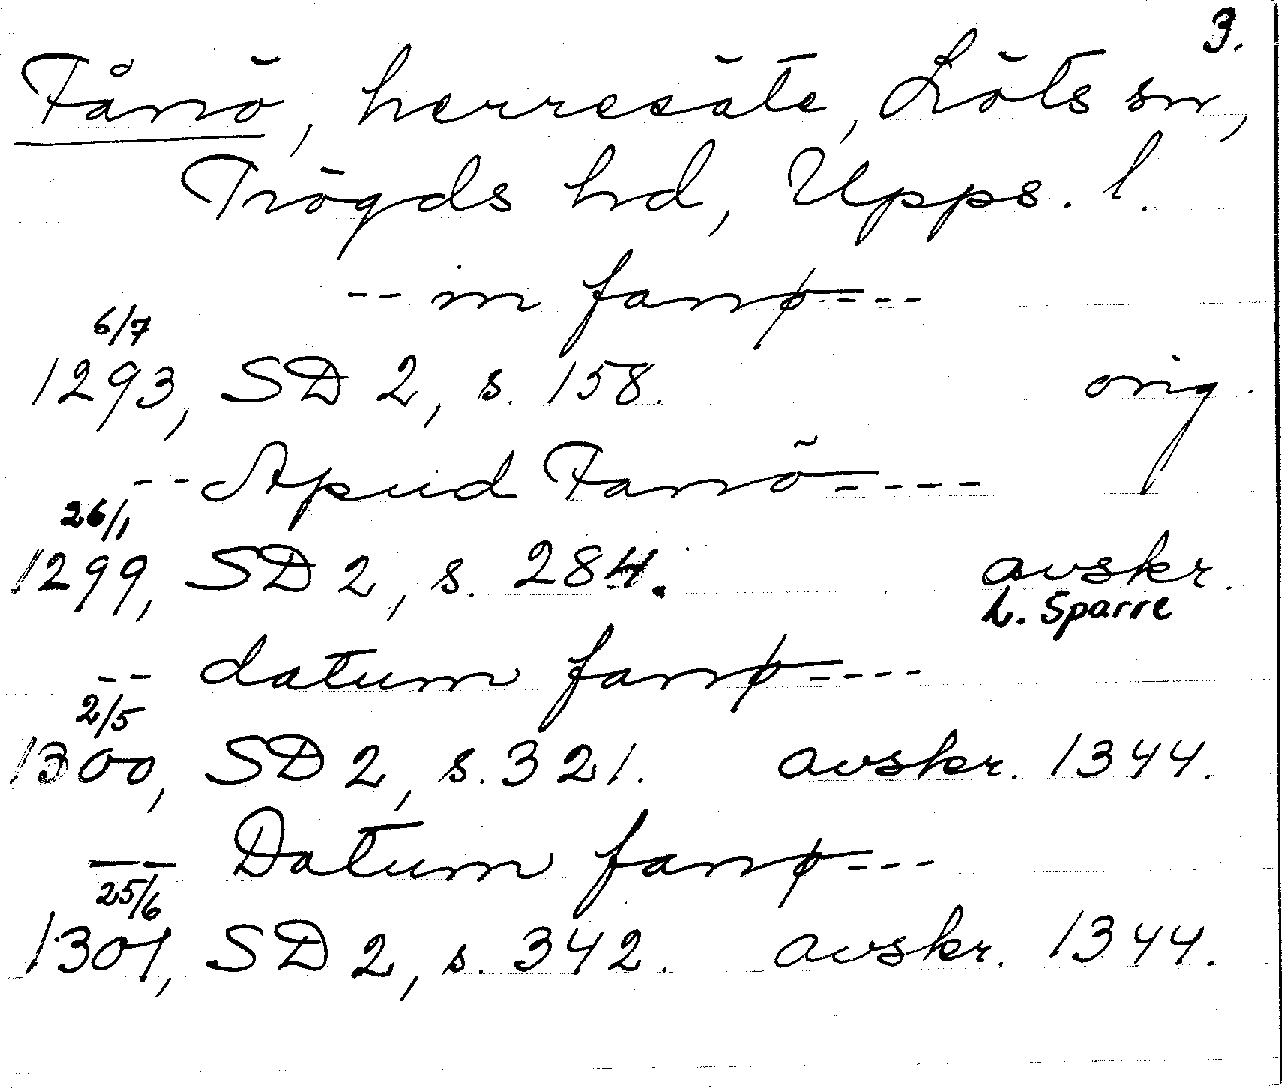 3.
Fånö, herresäte, Löts sn,
Trögds hd, Upps. l.
-- in fanø ---
6/7
1293, SD 2, s. 158. orig.
-- Apud Fanö ----
26/1
1299, SD 2, s. 284. avskr.
L. Sparre
-- datum fanø ----
2/5
1300, SD 2, s. 321. avskr. 1344.
-- Datum fanø ---
25/6
1301, SD 2, s. 342. avskr. 1344.